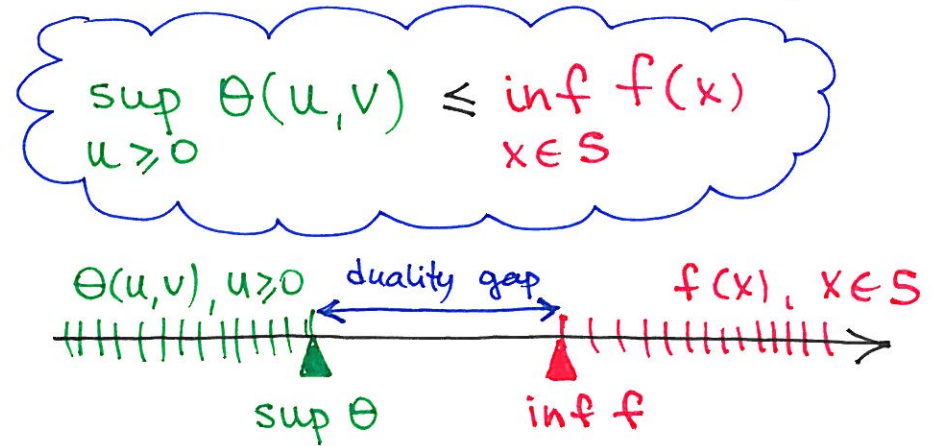 sup θ(u,v) ≤ inf f(x)
u⩾0 x∈S
θ(u,v), u⩾0 duality gap f(x), x∈S
sup θ inf f